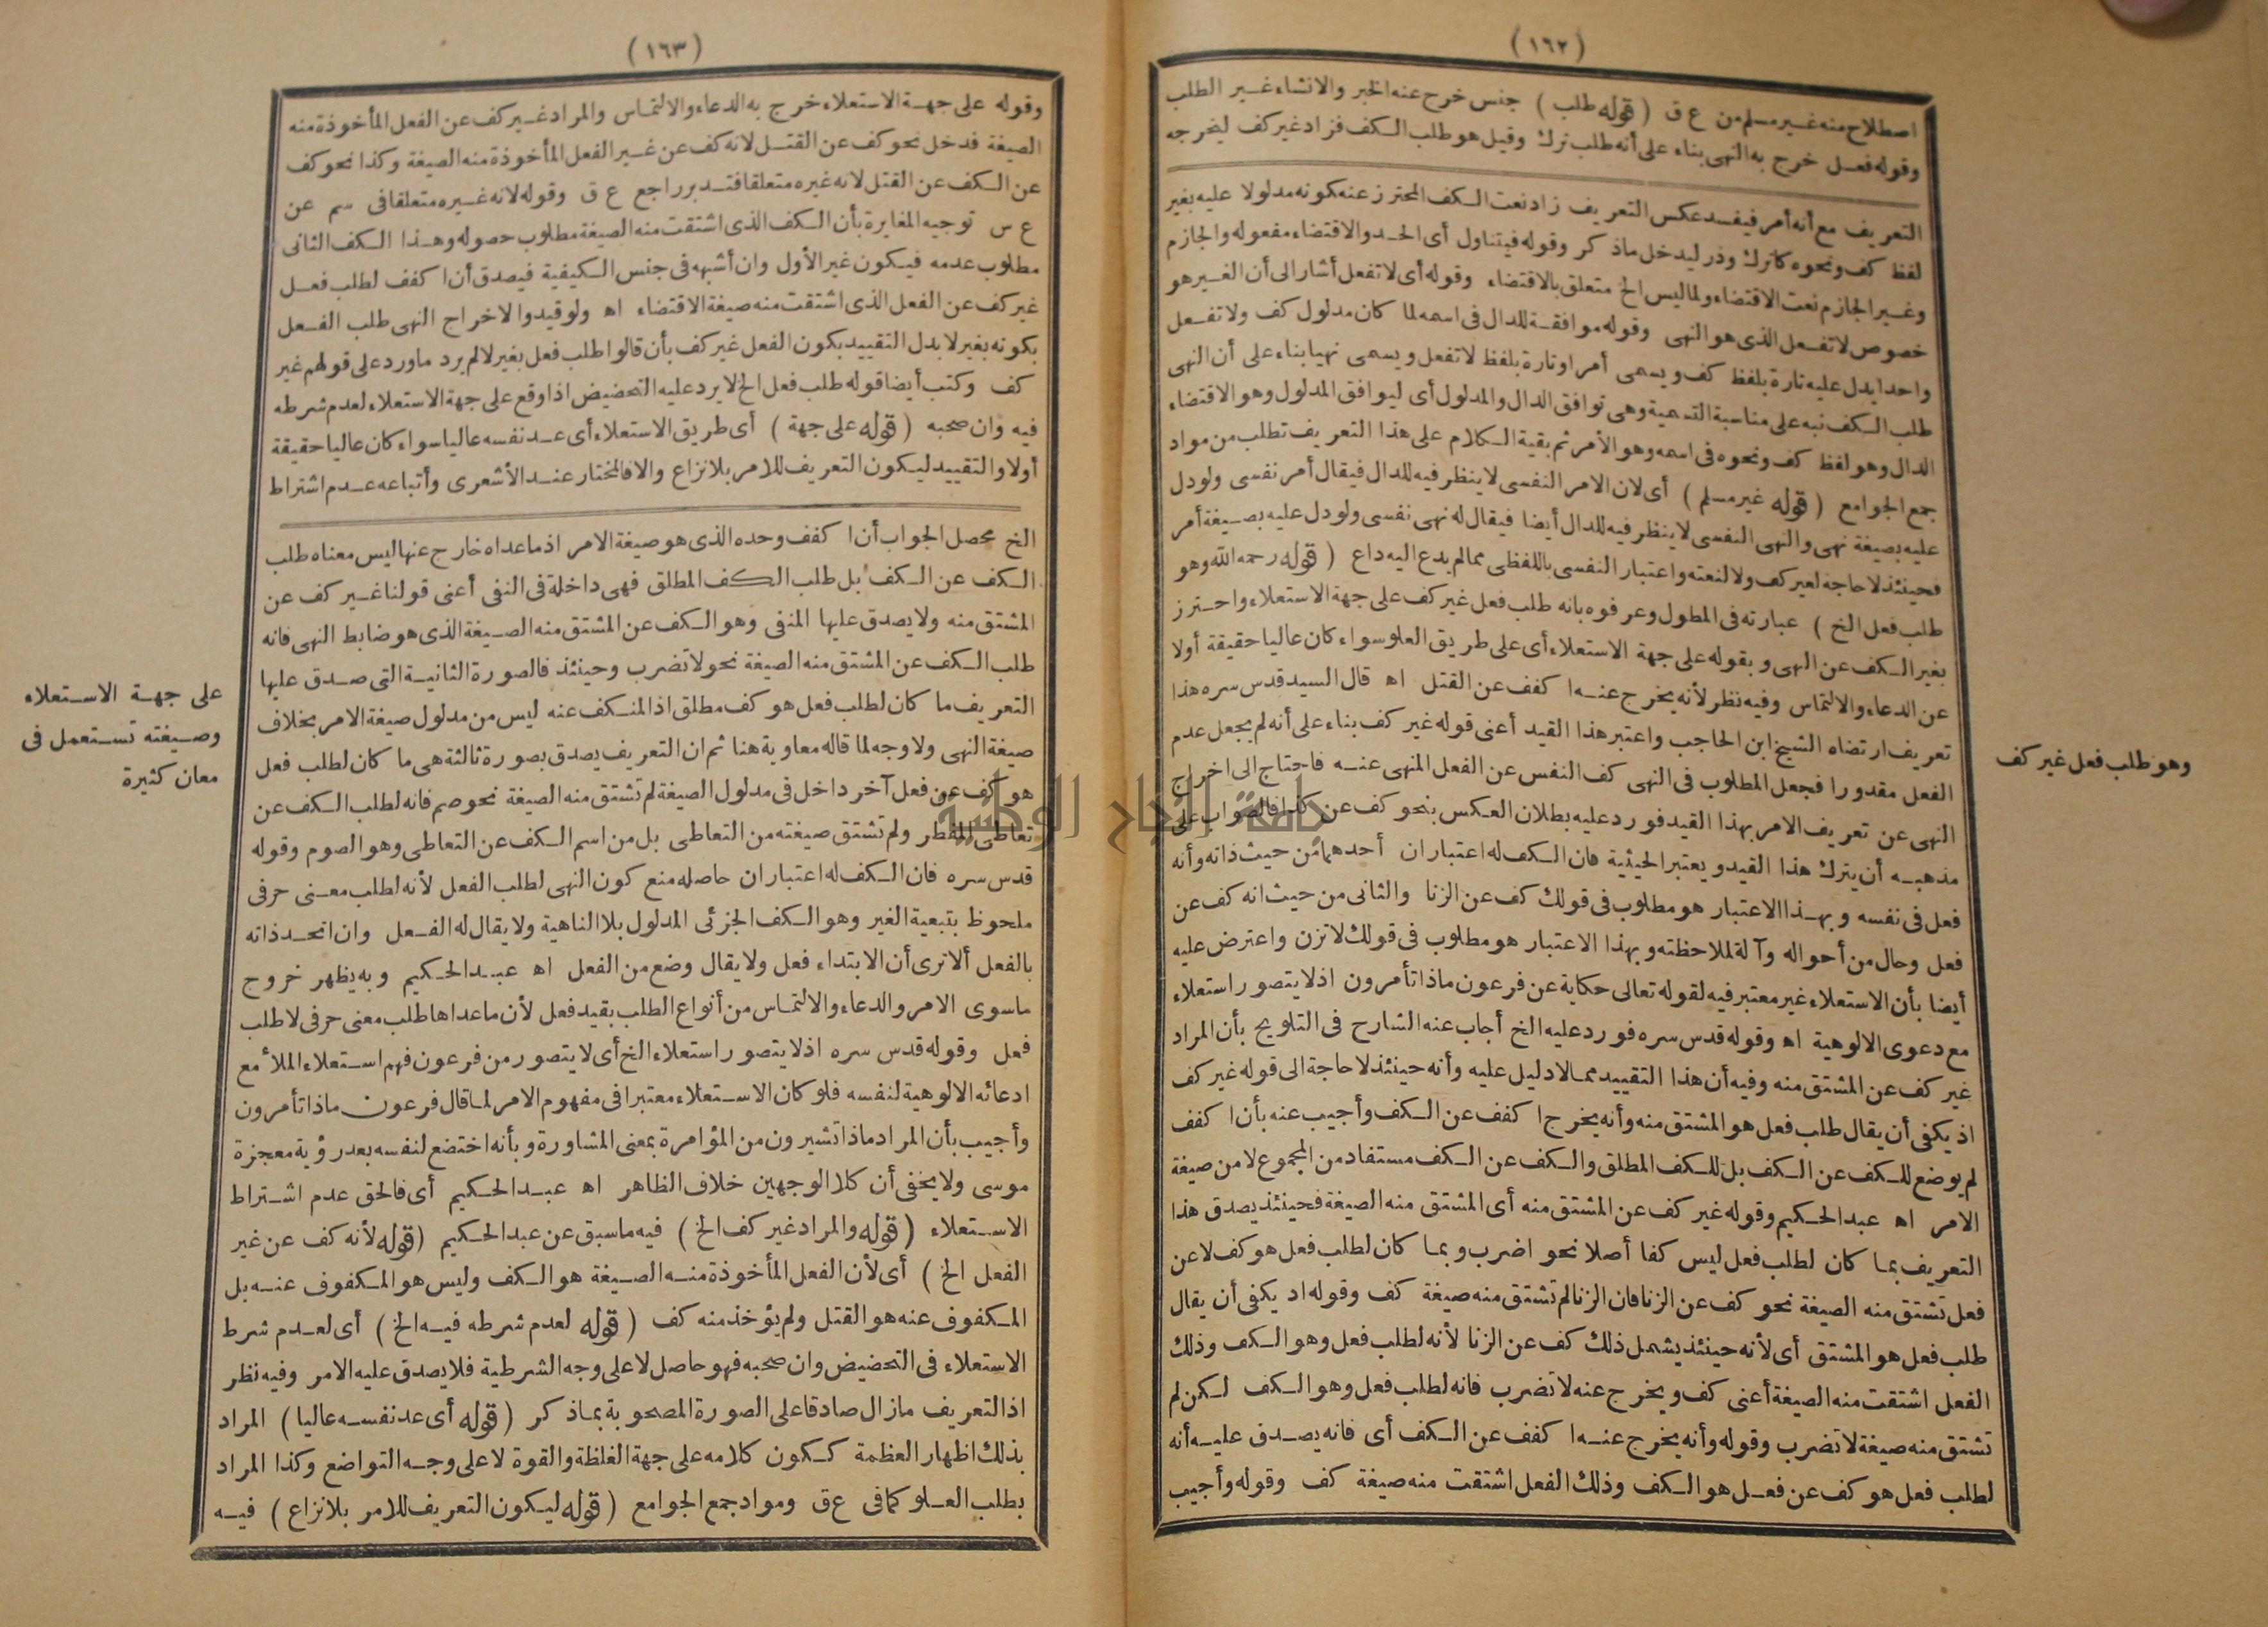 (١٦٢)
اصطلاح منه غير مسلم من ع ق (قوله طلب) جنس خرج عنه الخبر والانشاء غير الطلب
وقوله فعل خرج به النهى بناء على أنه طلب ترك وقيل هو طلب الكف فزاد غير كف ليخرجه
التعريف مع أنه أمر فيفسد عكس التعريف زاد نعت الكف المحترز عنه كونه مدلولا عليه بغير
لفظ كف ونحوه كاترك وذر ليدخل ماذكر وقوله فيتناول أى الحد والاقتضاء مفعوله والجازم
وغير الجازم نعت الاقتضاء ولما ليس الخ متعلق بالاقتضاء وقوله أى لا تفعل أشار الى أن الغير هو
خصوص لا تفعل الذى هو النهى وقوله موافقة للدال فى اسمه لما كان مدلول كف ولا تفعل
واحدا يدل عليه تارة بلفظ كف ويسمى أمرا وتارة بلفظ لا تفعل ويسمى نهيا بناء على أن النهى
طلب الكف نبه على مناسبة التسمية وهى توافق الدال والمدلول أى ليوافق المدلول وهو الاقتضاء
الدال وهو لفظ كف ونحوه فى اسمه وهو الأمر ثم بقية الكلام على هذا التعريف تطلب من مواد
جمع الجوامع (قوله غير مسلم) أى لان الامر النفسى لا ينظر فيه للدال فيقال أمر نفسى ولو دل
عليه بصيغة نهى والنهى النفسى لا ينظر فيه للدال أيضا فيقال له نهى نفسى ولو دل عليه بصيغة أمر
فحينئذ لا حاجة لغير كف ولا لنعته واعتبار النفسى باللفظى مما لم يدع اليه داع (قوله رحمه الله وهو
طلب فعل الخ) عبارته فى المطول وعرفوه بانه طلب فعل غير كف على جهة الاستعلاء واحترز
بغير الكف عن النهى وبقوله على جهة الاستعلاء أى على طريق العلو سواء كان عاليا حقيقة أولا
عن الدعاء والالتماس وفيه نظر لأنه يخرج عنه ا كفف عن القتل اه قال السيد قدس سره هذا
تعريف ارتضاه الشيخ ابن الحاجب واعتبر هذا القيد أعنى قوله غير كف بناء على أنه لم يجعل عدم
الفعل مقدورا فجعل المطلوب فى النهى كف النفس عن الفعل المنهى عنه فاحتاج الى اخراج
النهى عن تعريف الامر بهذا القيد فورد عليه بطلان العكس بنحو كف عن كذا فالصواب على
مذهبه أن يترك هذا القيد ويعتبر الحيثية فان الكف له اعتباران أحدهما من حيث ذاته وأنه
فعل فى نفسه وبهذا الاعتبار هو مطلوب فى قولك كف عن الزنا والثانى من حيث انه كف عن
فعل وحال من أحواله وآلة لملاحظته وبهذا الاعتبار هو مطلوب فى قولك لا تزن واعترض عليه
أيضا بأن الاستعلاء غير معتبر فيه لقوله تعالى حكاية عن فرعون ماذا تأمرون اذ لا يتصور استعلاء
مع دعوى الالوهية اه وقوله قدس سره فورد عليه الخ أجاب عنه الشارح فى التلويح بأن المراد
غير كف عن المشتق منه وفيه أن هذا التقييد مما لا دليل عليه وأنه حينئذ لا حاجة الى قوله غير كف
اذ يكفى أن يقال طلب فعل هو المشتق منه وأنه يخرج ا كفف عن الكف وأجيب عنه بأن ا كفف
لم يوضع للكف عن الكف بل للكف المطلق والكف عن الكف مستفاد من المجموع لا من صيغة
الامر اه عبد الحكيم وقوله غير كف عن المشتق منه أى المشتق منه الصيغة فحينئذ يصدق هذا
التعريف بما كان لطلب فعل ليس كفا أصلا نحو اضرب وبما كان لطلب فعل هو كف لا عن
فعل تشتق منه الصيغة نحو كف عن الزنا فان الزنا لم تشتق منه صيغة كف وقوله اذ يكفى أن يقال
طلب فعل هو المشتق أى لأنه حينئذ يشمل ذلك كف عن الزنا لأنه لطلب فعل وهو الكف وذلك
الفعل اشتقت منه الصيغة أعنى كف ويخرج عنه لا تضرب فانه لطلب فعل وهو الكف لكن لم
تشتق منه صيغة لا تضرب وقوله وأنه يخرج عنه ا كفف عن الكف أى فانه يصدق عليه أنه
لطلب فعل هو كف عن فعل هو الكف وذلك الفعل اشتقت منه صيغة كف وقوله وأجيب
وهو طلب فعل غير كف
(١٦٣)
وقوله على جهة الاستعلاء خرج به الدعاء والالتماس والمراد غير كف عن الفعل المأخوذة منه
الصيغة فدخل نحو كف عن القتل لانه كف عن غير الفعل المأخوذة منه الصيغة وكذا نحو كف
عن الكف عن القتل لانه غيره متعلقا فتدبر راجع ع ق وقوله لانه غيره متعلقا فى سم عن
ع س توجيه المغايرة بأن الكف الذى اشتقت منه الصيغة مطلوب حصوله وهذا الكف الثانى
مطلوب عدمه فيكون غير الأول وان أشبهه فى جنس الكيفية فيصدق أن ا كفف لطلب فعل
غير كف عن الفعل الذى اشتقت منه صيغة الاقتضاء اه ولو قيدوا لاخراج النهى طلب الفعل
بكونه بغير لا بدل التقييد بكون الفعل غير كف بأن قالوا طلب فعل بغير لا لم يرد ماورد على قولهم غير
كف وكتب أيضا قوله طلب فعل الخ لا يرد عليه التحضيض اذا وقع على جهة الاستعلاء لعدم شرطه
فيه وان صحبه (قوله على جهة) أى طريق الاستعلاء أى عد نفسه عاليا سواء كان عاليا حقيقة
أولا والتقييد ليكون التعريف للامر بلا نزاع والا فالمختار عند الأشعرى وأتباعه عدم اشتراط
الخ محصل الجواب أن ا كفف وحده الذى هو صيغة الامر اذ ماعداه خارج عنها ليس معناه طلب
الكف عن الكف بل طلب الكف المطلق فهى داخلة فى النفى أعنى قولنا غير كف عن
المشتق منه ولا يصدق عليها المنفى وهو الكف عن المشتق منه الصيغة الذى هو ضابط النهى فانه
طلب الكف عن المشتق منه الصيغة نحو لا تضرب وحينئذ فالصورة الثانية التى صدق عليها
التعريف ما كان لطلب فعل هو كف مطلق اذ المنكف عنه ليس من مدلول صيغة الامر بخلاف
صيغة النهى ولا وجه لما قاله معاوية هنا ثم ان التعريف يصدق بصورة ثالثة هى ما كان لطلب فعل
هو كف عن فعل آخر داخل فى مدلول الصيغة لم تشتق منه الصيغة نحو صم فانه لطلب الكف عن
تعاطى المفطر ولم تشتق صيغته من التعاطى بل من اسم الكف عن التعاطى وهو الصوم وقوله
قدس سره فان الكف له اعتباران حاصله منع كون النهى لطلب الفعل لأنه لطلب معنى حرفى
ملحوظ بتبعية الغير وهو الكف الجزئى المدلول بلا الناهية ولا يقال له الفعل وان اتحد ذاته
بالفعل ألا ترى أن الابتداء فعل ولا يقال وضع من الفعل اه عبد الحكيم وبه يظهر خروج
ماسوى الامر والدعاء والالتماس من أنواع الطلب بقيد فعل لأن ماعداها طلب معنى حرفى لا طلب
فعل وقوله قدس سره اذ لا يتصور استعلاء الخ أى لا يتصور من فرعون فهم استعلاء الملأ مع
ادعائه الالوهية لنفسه فلو كان الاستعلاء معتبرا فى مفهوم الامر لما قال فرعون ماذا تأمرون
وأجيب بأن المراد ماذا تشيرون من المؤامرة بمعنى المشاورة وبأنه اختضع لنفسه بعد رؤية معجزة
موسى ولا يخفى أن كلا الوجهين خلاف الظاهر اه عبد الحكيم أى فالحق عدم اشتراط
الاستعلاء (قوله والمراد غير كف الخ) فيه ماسبق عن عبد الحكيم (قوله لأنه كف عن غير
الفعل الخ) أى لأن الفعل المأخوذة منه الصيغة هو الكف وليس هو المكفوف عنه بل
المكفوف عنه هو القتل ولم يؤخذ منه كف (قوله لعدم شرطه فيه الخ) أى لعدم شرط
الاستعلاء فى التحضيض وان صحبه فهو حاصل لا على وجه الشرطية فلا يصدق عليه الامر وفيه نظر
اذ التعريف مازال صادقا على الصورة المصحوبة بماذكر (قوله أى عد نفسه عاليا) المراد
بذلك اظهار العظمة ككون كلامه على جهة الغلظة والقوة لا على وجه التواضع وكذا المراد
بطلب العلو كما فى ع ق ومواد جمع الجوامع (قوله ليكون التعريف للامر بلا نزاع) فيه
على جهة الاستعلاء
وصيغته تستعمل فى
معان كثيرة
جامعة النجاح الوطنية